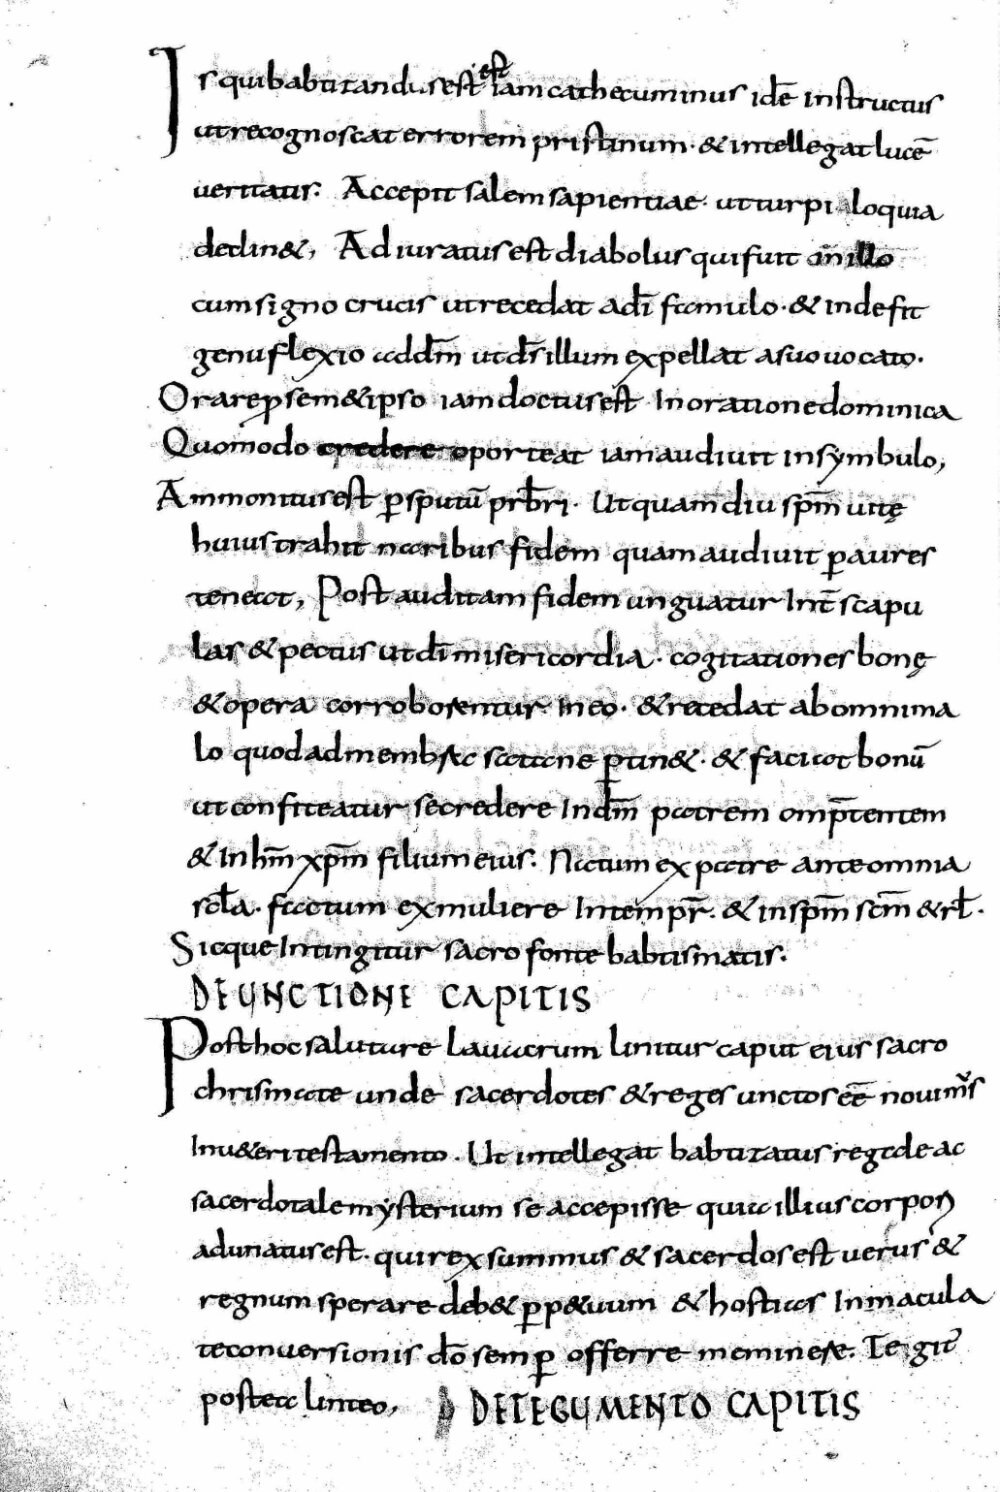 Is qui babtizandus est est iam cathecuminus idē instructus
ut recognoscat errorem pristinum · & intellegat lucē
veritatis : Accepit salem sapientiae · ut turpiloquia
declin&, Adiuratus est diabolus qui fuit in illo
cum signo crucis ut recedat a dī famulo · & inde fit
genuflexio ad dm̄ ut ds̄ illum expellat a suo vocato ·
Orare p̱ sem&ipso iam doctus est In oratione dominica
Quomodo credere oporteat iam audivit in symbulo,
Ammonitus est p̱ sputū prb̄ri · Ut quamdiu spm̄ vitę
huius trahit naribus fidem quam audivit p̱ aures
teneat, Post auditam fidem unguatur Int̄ scapu
las & pectus ut dī misericordia · cogitationes bonę
& opera corroborentur In eo · & recedat ab omni ma
lo quod ad membra satane p̱tin& · & faciat bonū
ut confiteatur se credere In dm̄ patrem omp̄tentem
& In ihm̄ xpm̄ filium eius · Natum ex patre ante omnia
scl̄a · factum ex muliere Intem pr̄ · & in spm̄ scm̄ & rł ·
Sicque Intingitur sacro fonte babtismatis ·
DE UNCTIONE CAPITIS
Post hoc salutare lavacrum linitur caput eius sacro
chrismate unde sacerdotes & reges unctos eē novim̄s
In v&eri testamento · Ut intellegat babtizatus regale ac
sacerdotale mẏsterium se accepisse quia illius corpori
adunatus est · qui rex summus & sacerdos est verus &
regnum sperare deb& p̱p&uum & hostias Inmacula
te conversionis dō semp̱ offerre meminere. Tegit̄
postea linteo, DE TEGUMENTO CAPITIS